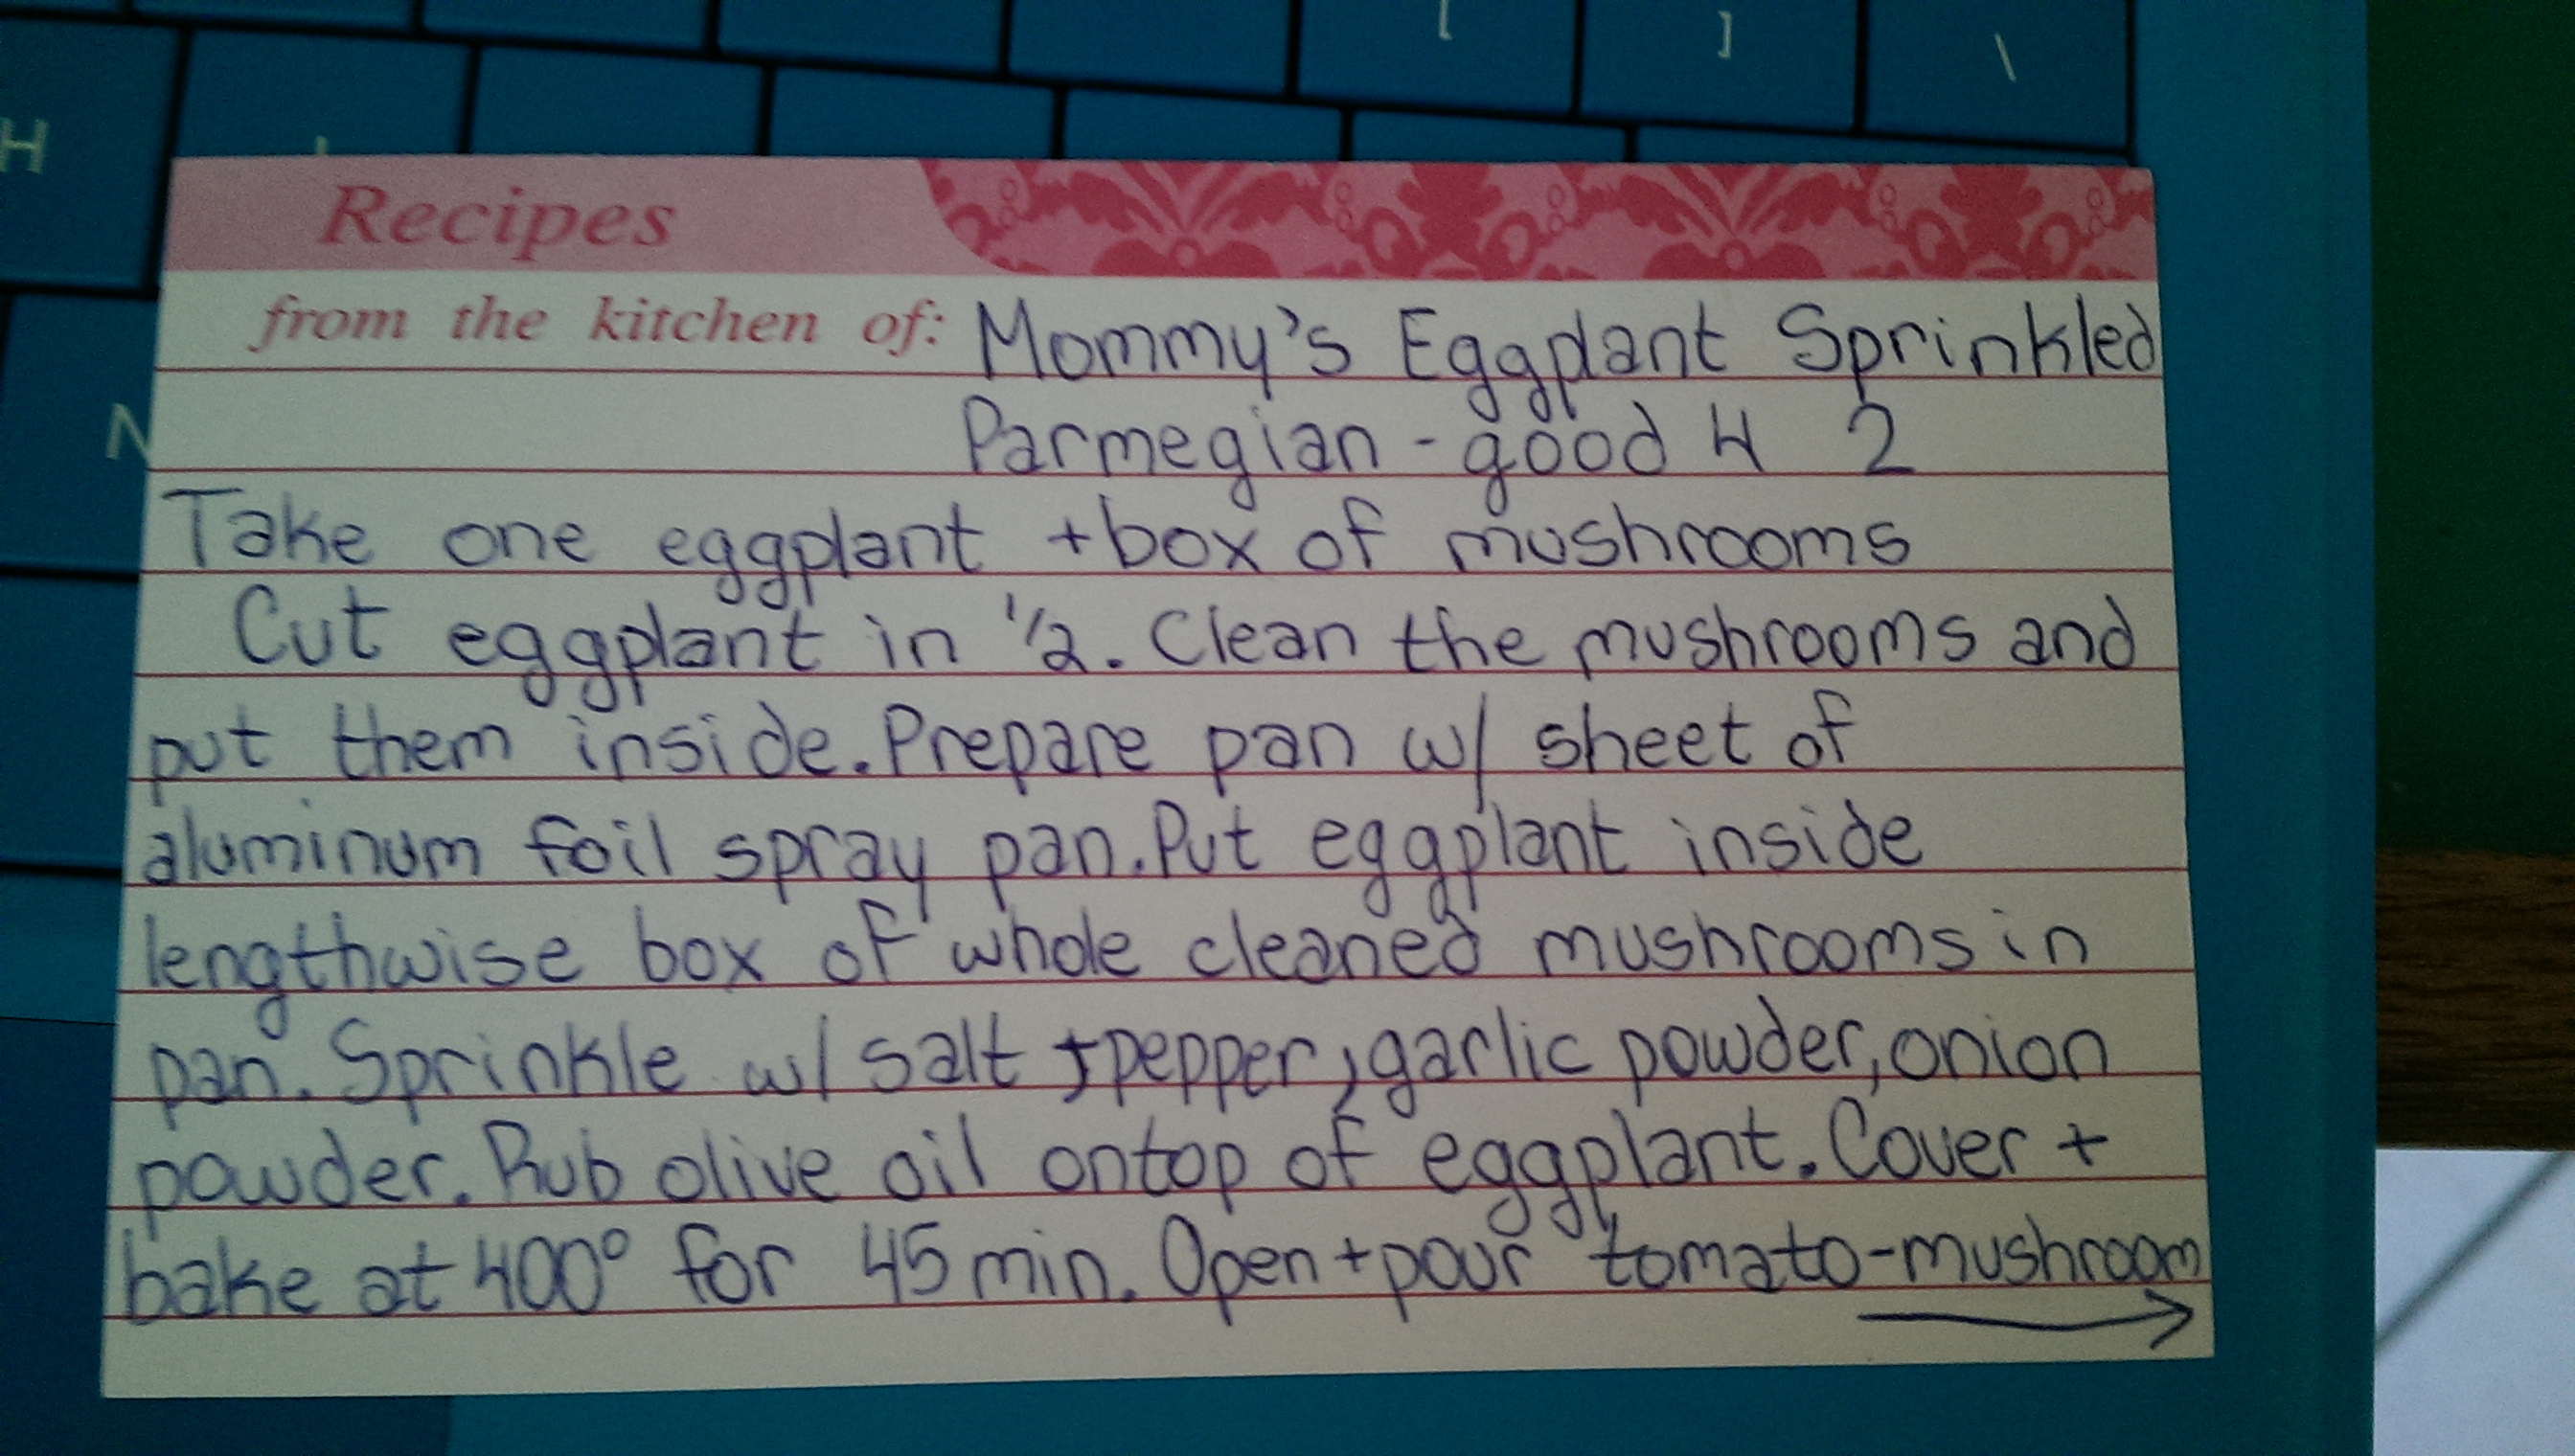 [ ] \
H
N
Recipes
from the kitchen of: Mommy's Eggplant Sprinkled
Parmegian - good 4 2
Take one eggplant + box of mushrooms
Cut eggplant in 1/2. Clean the mushrooms and
put them inside. Prepare pan w/ sheet of
aluminum foil spray pan. Put eggplant inside
lengthwise box of whole cleaned mushrooms in
pan. Sprinkle w/ salt + pepper, garlic powder, onion
powder. Rub olive oil ontop of eggplant. Cover +
bake at 400° for 45 min. Open + pour tomato-mushroom
→